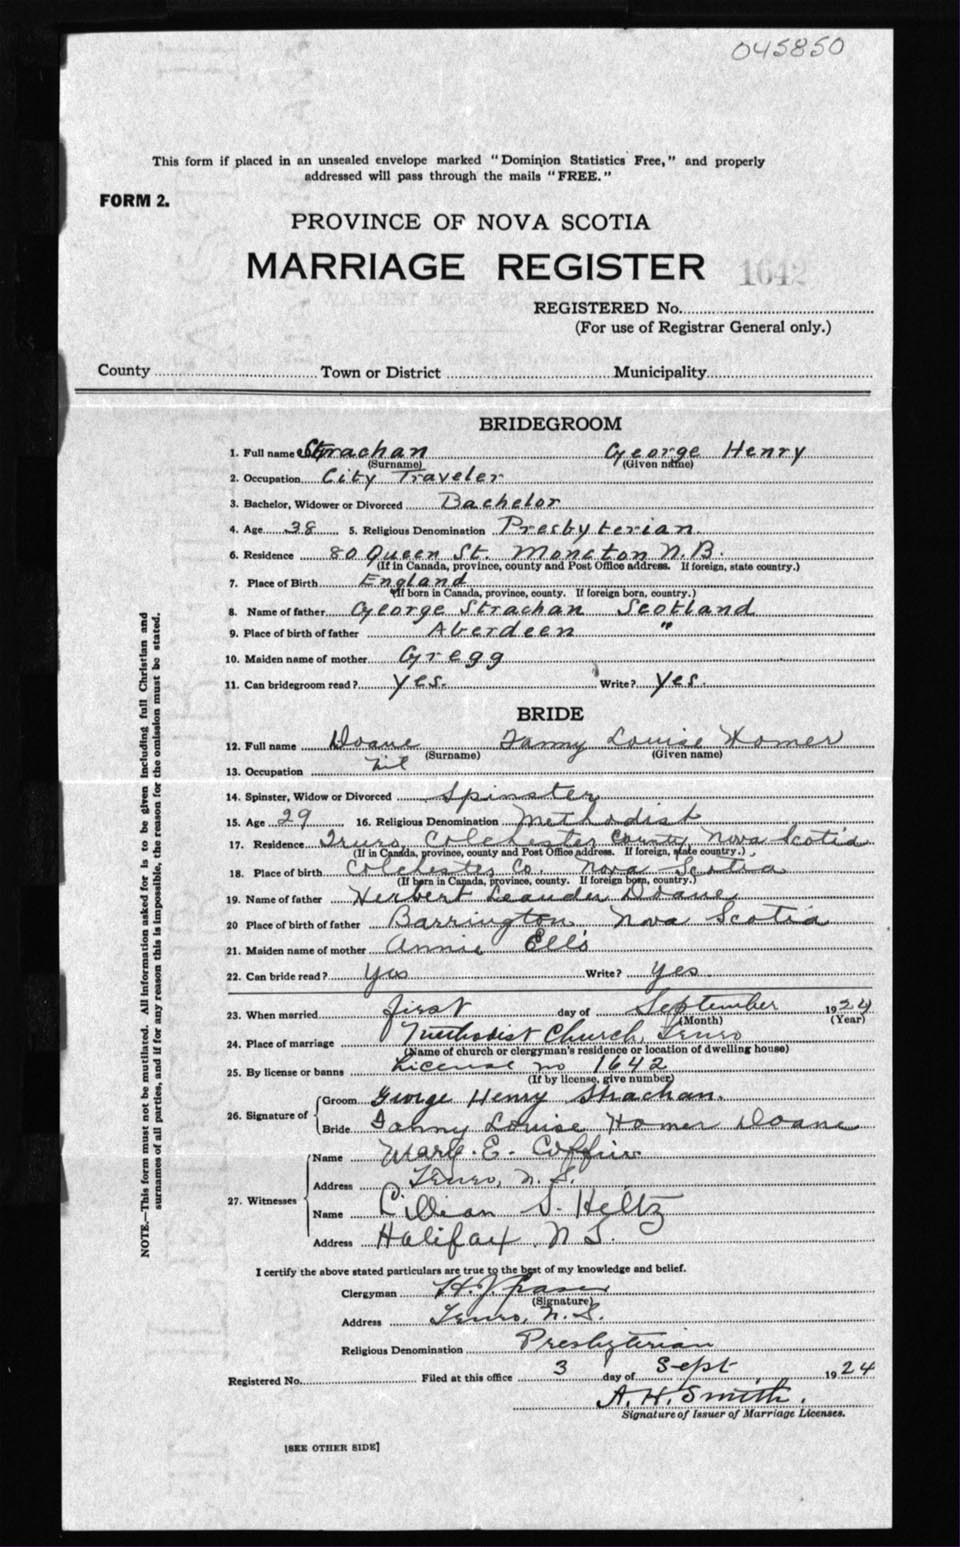 045850
This form if placed in an unsealed envelope marked "Dominion Statistics Free," and properly
addressed will pass through the mails "FREE."
FORM 2.
PROVINCE OF NOVA SCOTIA
MARRIAGE REGISTER 1642
REGISTERED No.
(For use of Registrar General only.)
County Town or District Municipality
BRIDEGROOM
1. Full name Strachan George Henry
(Surname) (Given name)
2. Occupation City Traveler
3. Bachelor, Widower or Divorced Bachelor
4. Age 38 5. Religious Denomination Presbyterian
6. Residence 80 Queen St. Moncton N.B.
(If in Canada, province, county and Post Office address. If foreign, state country.)
7. Place of Birth England
(If born in Canada, province, county. If foreign born, country.)
8. Name of father George Strachan Scotland
9. Place of birth of father Aberdeen "
10. Maiden name of mother Gregg
11. Can bridegroom read? Yes. Write? Yes.
BRIDE
12. Full name Doane Fanny Louise Homer
(Surname) (Given name)
13. Occupation nil
14. Spinster, Widow or Divorced Spinster
15. Age 29 16. Religious Denomination Methodist
17. Residence Truro, Colchester County, Nova Scotia
(If in Canada, province, county and Post Office address. If foreign, state country.)
18. Place of birth Colchester Co. Nova Scotia
(If born in Canada, province, county. If foreign born, country.)
19. Name of father Herbert Leander Doane
20 Place of birth of father Barrington, Nova Scotia
21. Maiden name of mother Annie Ells
22. Can bride read? Yes Write? Yes.
23. When married first day of September 1924
(Month) (Year)
24. Place of marriage Methodist Church, Truro
(Name of church or clergyman's residence or location of dwelling house)
25. By license or banns License no 1642
(If by license, give number)
26. Signature of Groom George Henry Strachan.
Bride Fanny Louise Homer Doane
27. Witnesses Name Mary. E. Coffin
Address Truro, N.S.
Name Lillian S. Heltz
Address Halifax, N.S.
I certify the above stated particulars are true to the best of my knowledge and belief.
Clergyman H. J. Fraser
(Signature)
Address Truro, N.S.
Religious Denomination Presbyterian
Registered No. Filed at this office 3 day of Sept 1924
A. H. Smith.
Signature of Issuer of Marriage Licenses.
[SEE OTHER SIDE]
NOTE.—This form must not be mutilated. All information asked for is to be given including full Christian and
surnames of all parties, and if for any reason this is impossible, the reason for the omission must be stated.